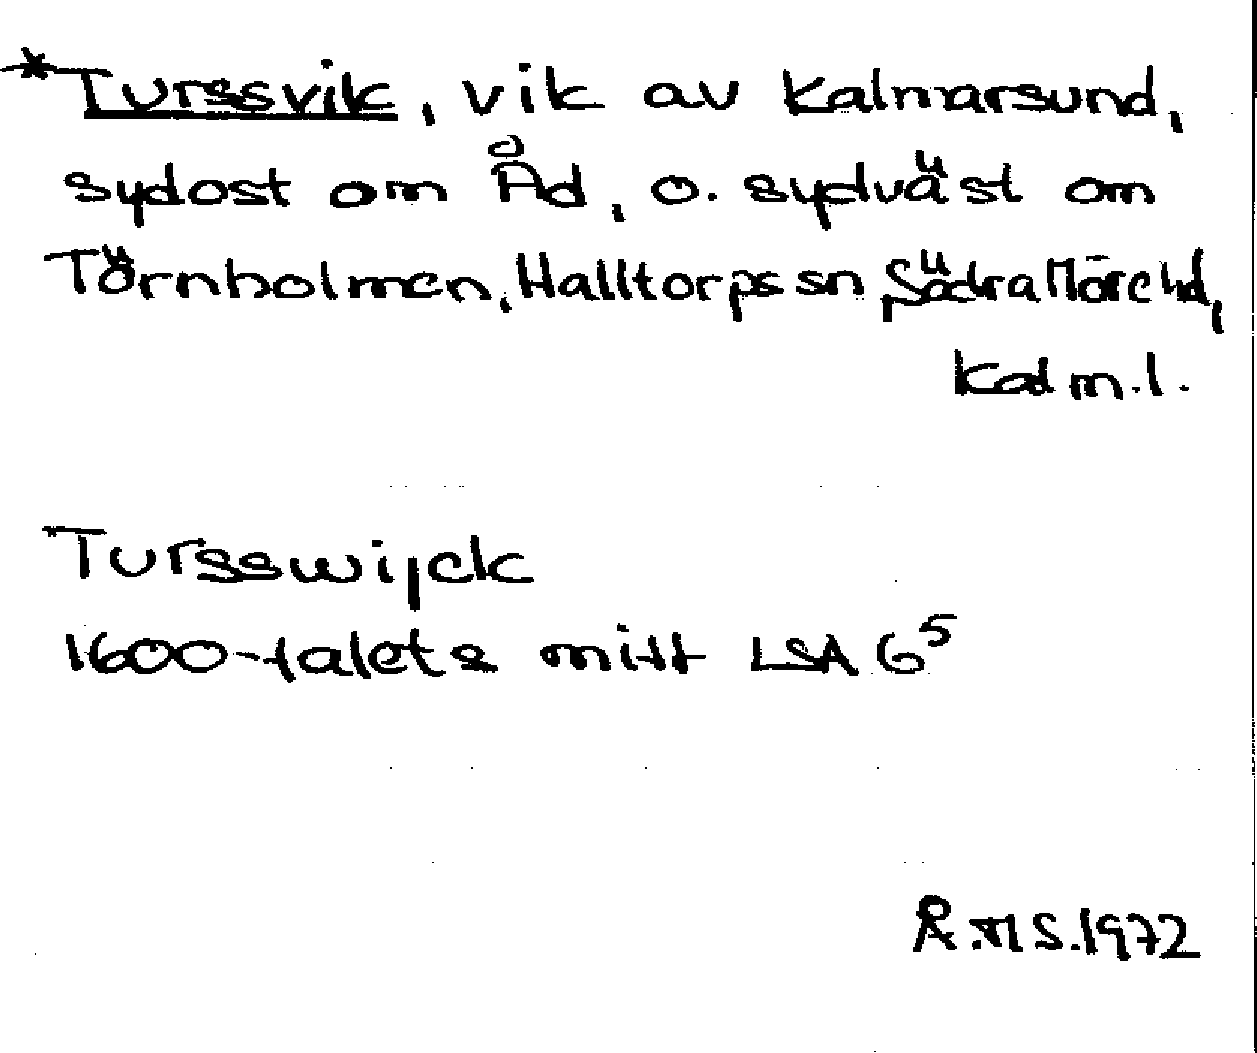 *Turssvik, vik av Kalmarsund,
sydost om Åd, o. sydväst om
Törnholmen, Halltorps sn, Södra Möre hd,
Kalm. l.
Tursswijck
1600-talets mitt LSA G⁵
Å.M S. 1972